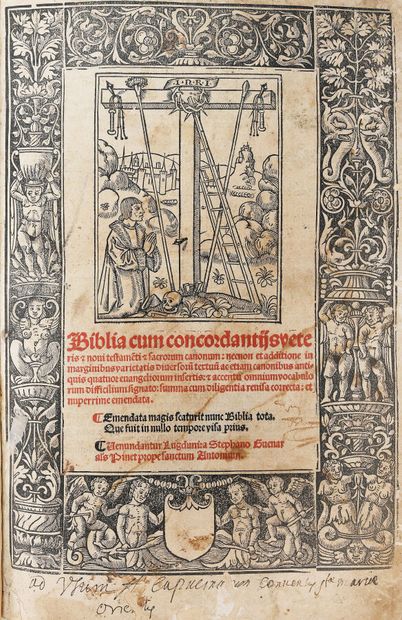 I.N.R.I.
Biblia cum concordantijs vete
ris ⁊ noui testamẽti ⁊ sacrorum canonum: necnon et additione in
marginibus varietatis diuersorũ textuũ ac etiam canonibus anti-
quis quatuor euangeliorum insertis: ⁊ accentu omnium vocabulo
rum difficilium signato: summa cum diligentia reuisa correcta: et
nuperrime emendata.
Emendata magis scaturit nunc Biblia tota.
Que fuit in nullo tempore visa prius.
Uenundantur Lugduni a Stephano Gueinar
alias Pinet prope sanctum Antonium.
ad Usum